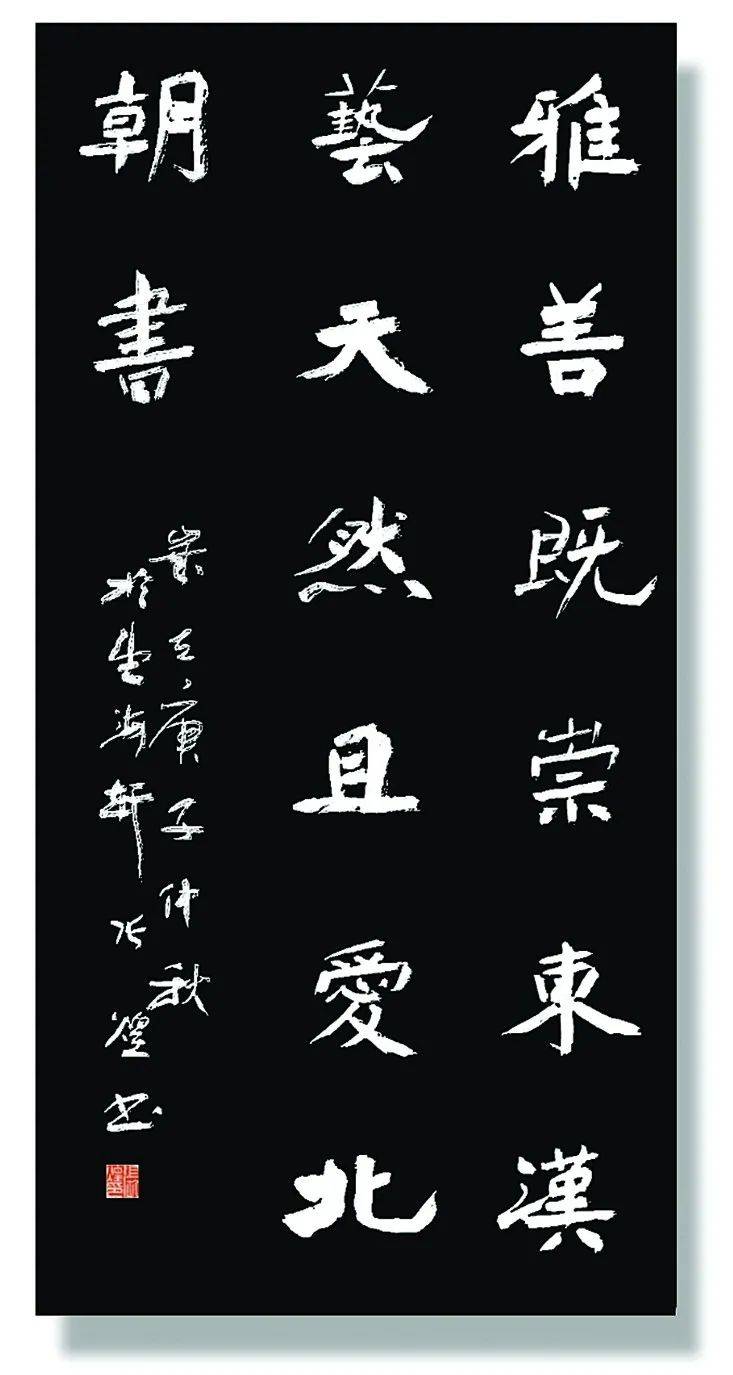 雅善既崇東漢
藝天然且愛北
朝書
庚子仲秋
於海軒張書